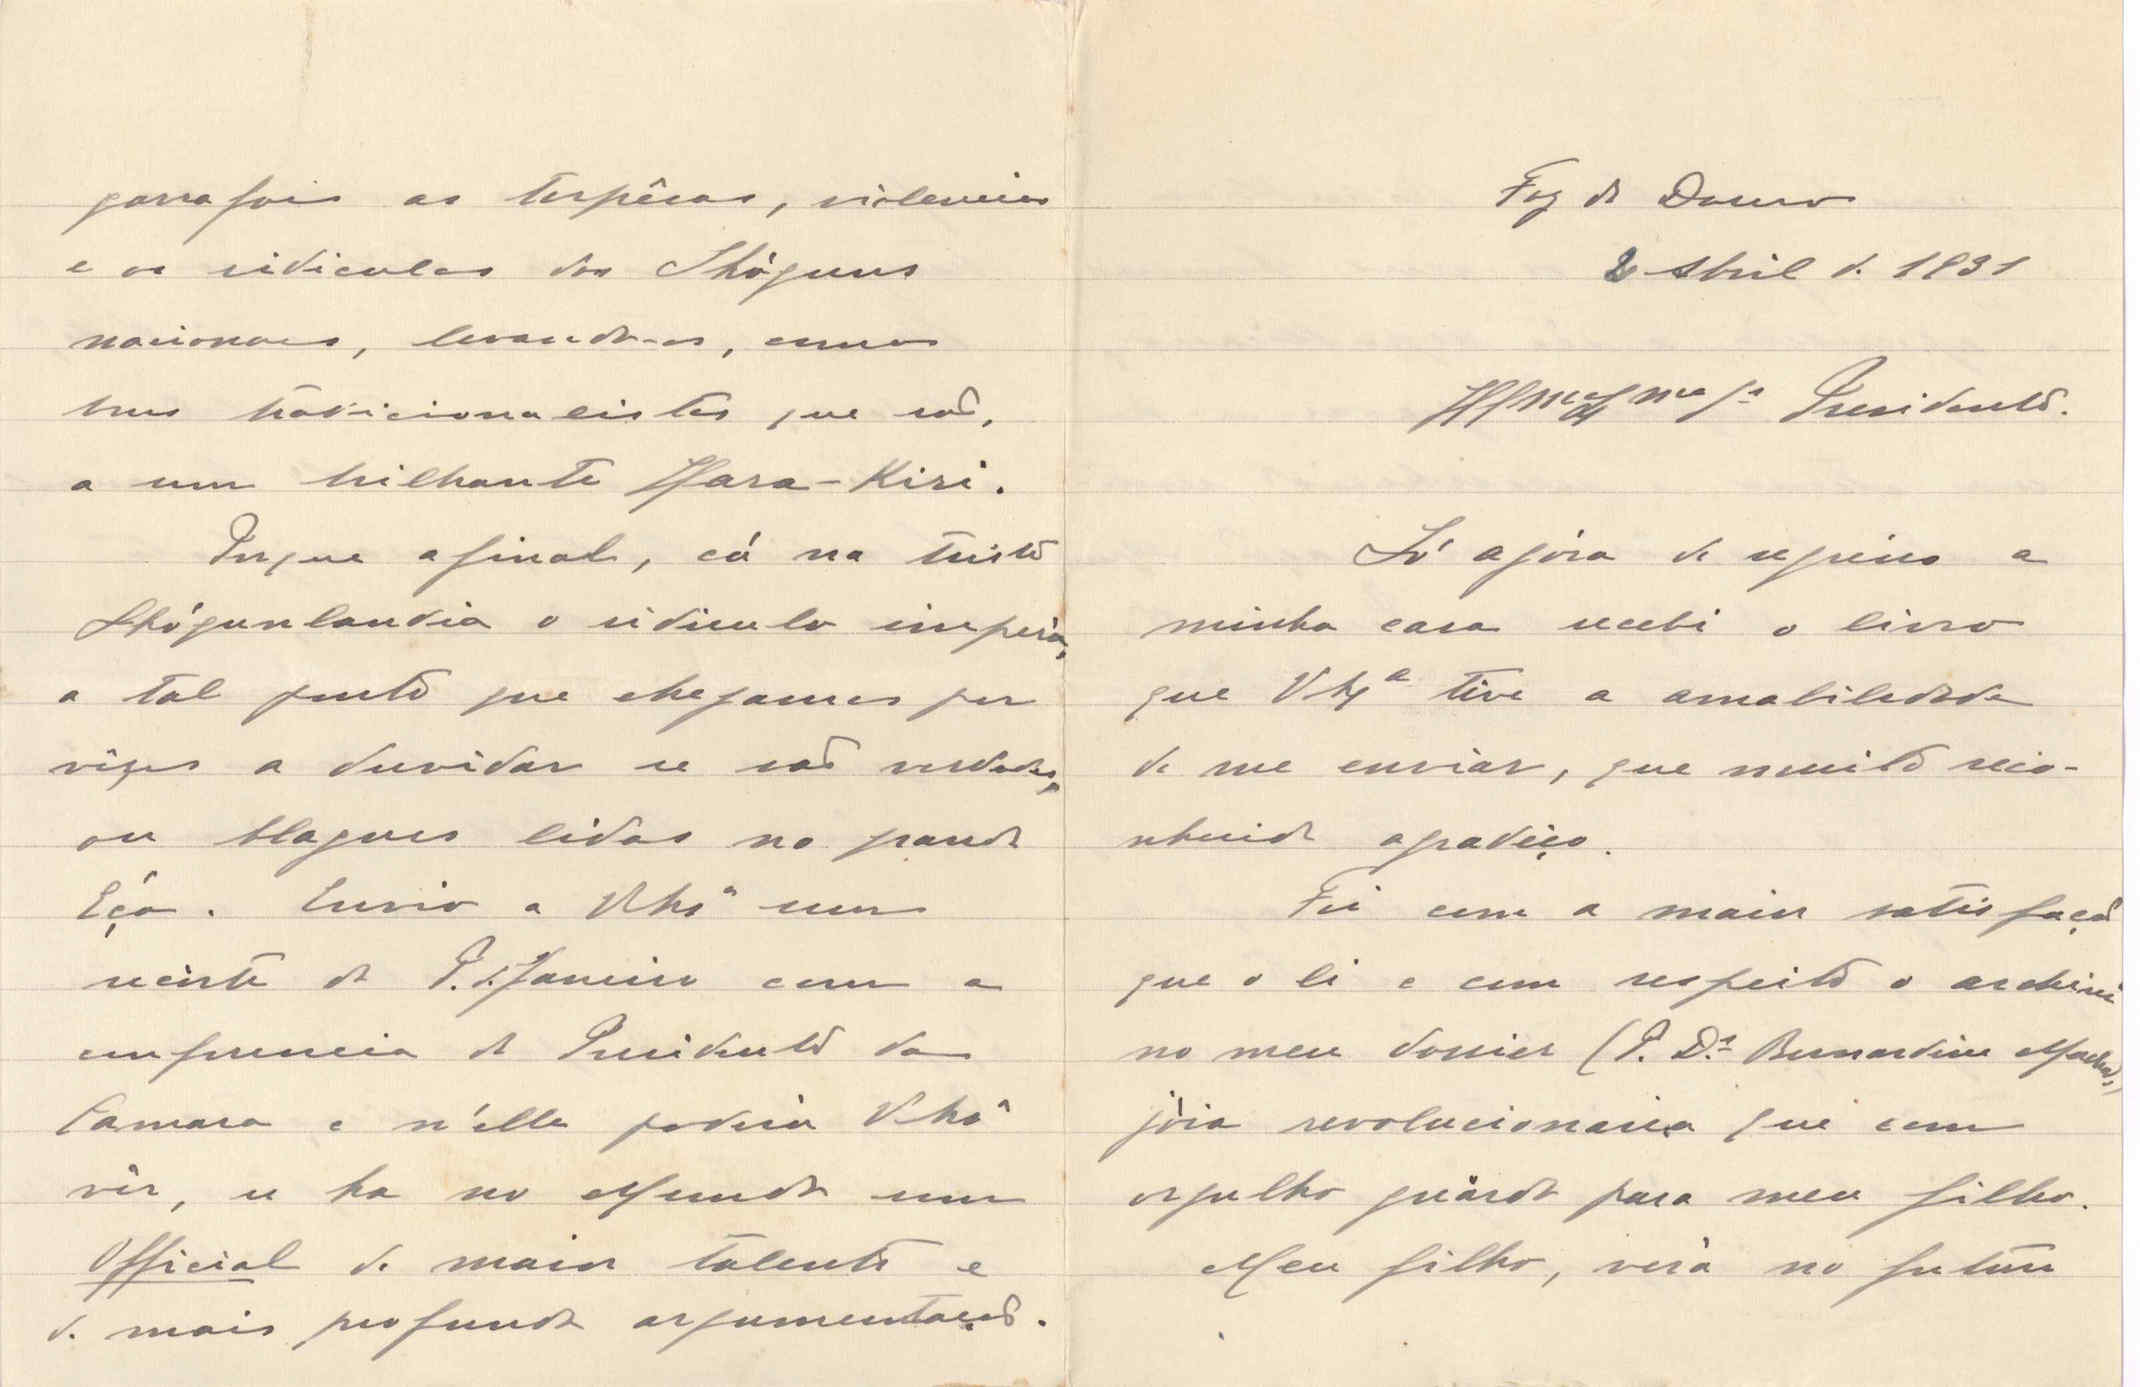 Foz do Douro
2 Abril d. 1931
Exmo Snr Presidente.
Só agora de regresso a
minha casa recebi o livro
que V. Exª teve a amabilidade
de me enviar, que muito reco-
nhecido agradeço.
Foi com a maior satisfação
que o li e com respeito o archivei
no meu dossier (P. Dr Bernardino Machado,)
joia revolucionaria que com
orgulho guárdo para meu filho.
Meu filho, verá no futuro
garrafais as torpêsas, violencias
e os ridiculos dos Shóguns
nacionaes, levando-os, como
bons tradicionalistas que são,
a um brilhante Hara-Kiri.
Porque afinal, cá na triste
Shógunlandia o ridiculo impéra,
a tal ponto que chegamos por
vêzes a duvidar se são verdades,
ou blagues lidas no grande
Eça. Envio a V. Exª um
recórte do P. de Janeiro com a
conferencia do Presidente da
Camara e n'élla poderá V. Exª
vêr, se ha no Mundo um
Official de maior talento e
d. mais profunda argumentação.